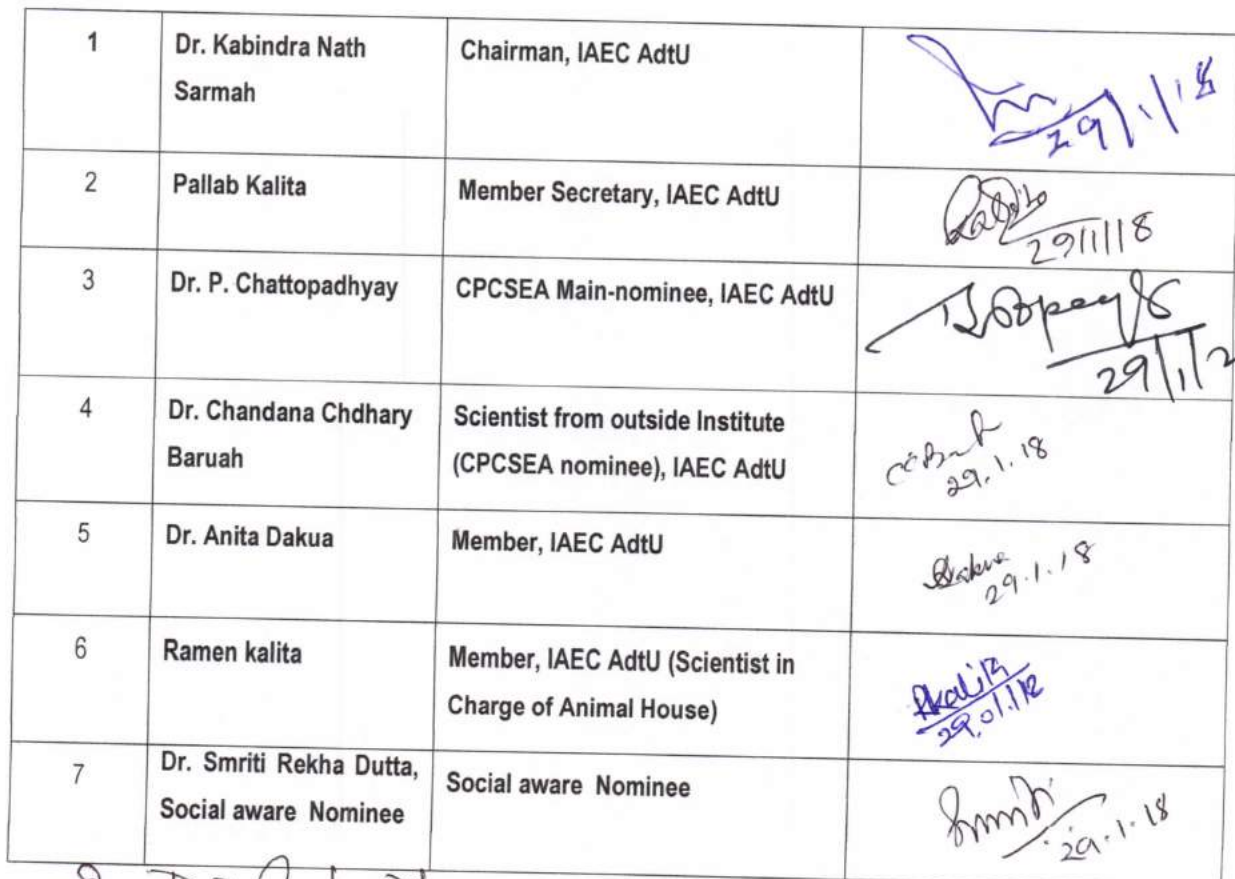 1 Dr. Kabindra Nath Chairman, IAEC AdtU
Sarmah
29/1/18
2 Pallab Kalita Member Secretary, IAEC AdtU
29/1/18
3 Dr. P. Chattopadhyay CPCSEA Main-nominee, IAEC AdtU
29/1/
4 Dr. Chandana Chdhary Scientist from outside Institute
Baruah (CPCSEA nominee), IAEC AdtU
29.1.18
5 Dr. Anita Dakua Member, IAEC AdtU
29.1.18
6 Ramen kalita Member, IAEC AdtU (Scientist in
Charge of Animal House)
Rkalita
7 Dr. Smriti Rekha Dutta, Social aware Nominee
Social aware Nominee
Smriti
29.1.18